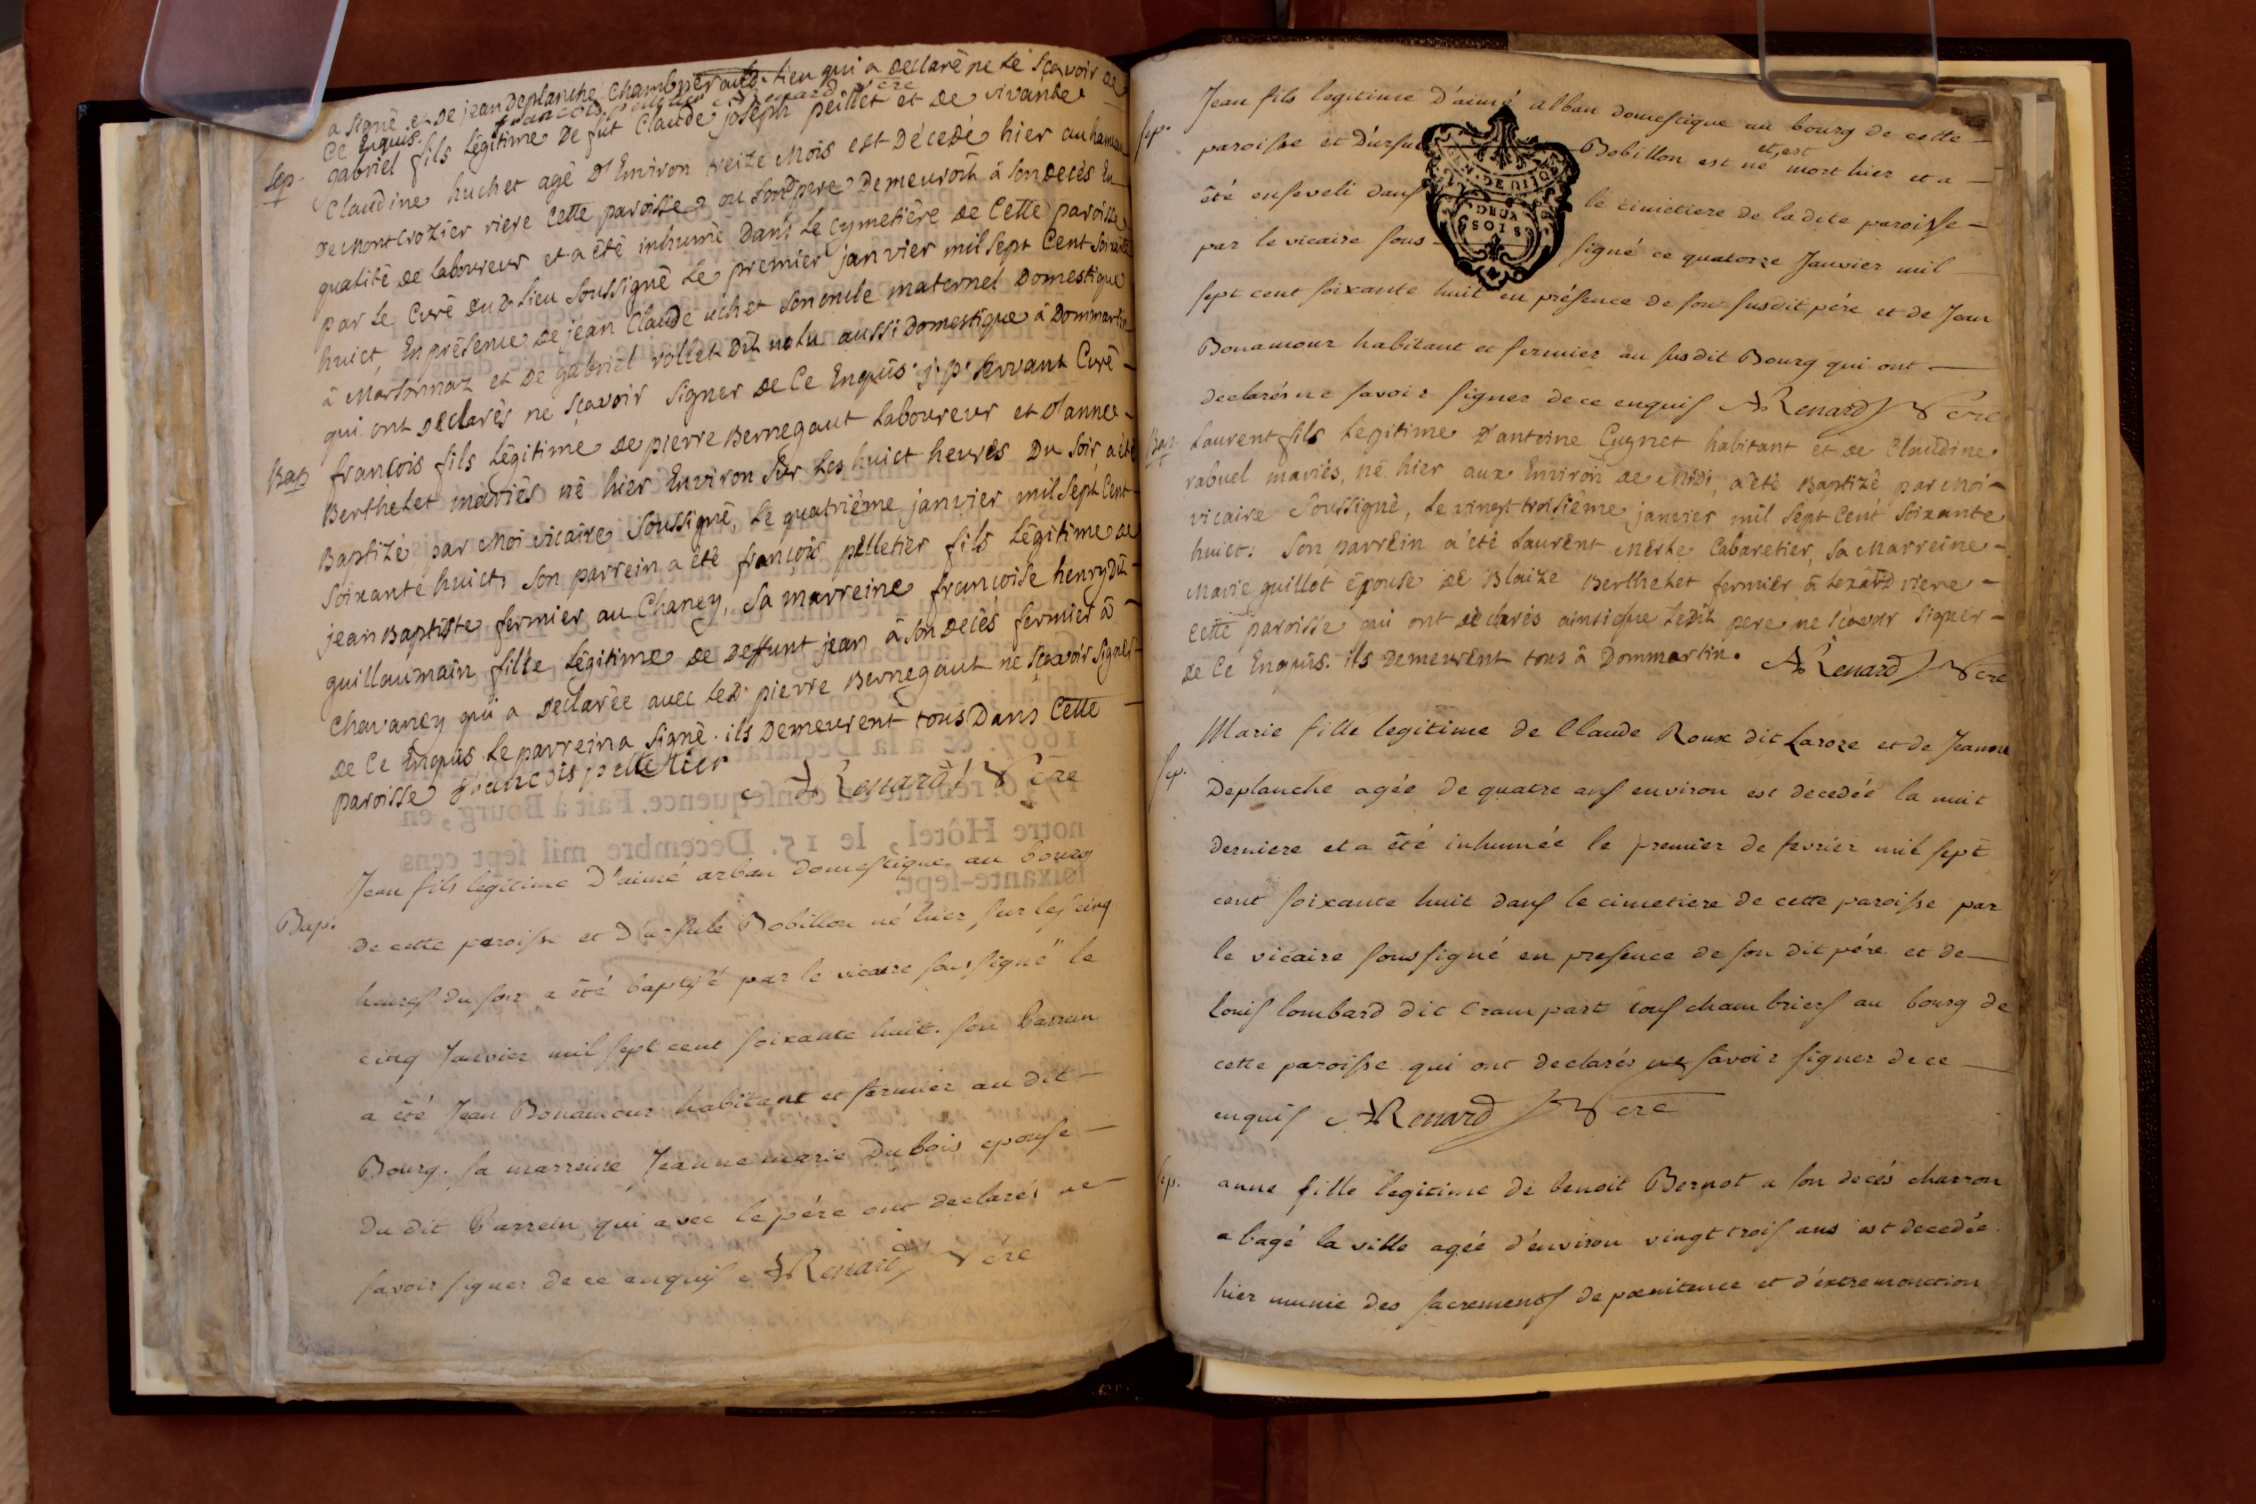 a signé et de jean Deplanche Chambrier aud. lieu qui a declaré ne le sçavoir de
Ce Enquis. françois pelletier ARenard Vcre
Sep. gabriel fils légitime de fût Claude joseph peillet et de vivante
Claudine huchet agé d'Environ treize Mois est décedé hier au hameau
de Montcrozier riere Cette paroisse, ou son pere demeuroit à son decès En
qualité de laboureur et a été inhumé dans le Cymetière de Cette paroisse
par le Curé dud. lieu soussigné le premier janvier mil sept Cent soixante
huict, En présence de jean Claude uchet son oncle maternel domestique
à Marsonnaz et de gabriel vollet dit nolu aussi domestique à Dommartin
qui ont declarés ne sçavoir signer de Ce Enquis. j. p. servant Curé
Bap françois fils légitime de pierre Bernegaut laboureur et d'anne
Berthelet mariés né hier Environ sur les huict heures du soir, a été
Baptizé par Moi vicaire soussigné, le quatriéme janvier mil sept Cent
soixante huict, son parrein a été françois pelletier fils légitime de
jean Baptiste fermier au Chaney, sa marreine françoise henry dit
guillaumain fille légitime de deffunt jean à son decès fermier à
Chavaney qui a declarée avec led. pierre Bernegaut ne sçavoir signer
de Ce Enquis le parrein a signé. ils demeurent tous dans Cette
paroisse françois pelletier ARenard Vcre
Jean fils legitime D'aimé arban domestique au bourg
Bap. de cette paroisse et d'ursule Bobillon né hier sur les cinq
heures du soir a été baptisé par le vicaire soussigné le
cinq Janvier mil sept cent soixante huit. son Parrein
a été Jean Bonamour habitant et fermier au dit
Bourg. sa marreine Jeanne marie Dubois epouse
du dit Parrein qui avec le pére ont declarés ne
savoir signer de ce enquis ARenard Vcre
Jean fils legitime D'aimé alban domestique au bourg de cette
Sep. paroisse et D'ursule Bobillon est né et est mort hier et a
été enseveli dans le cimetiere de la dite paroisse
par le vicaire sous signé ce quatorze Janvier mil
sept cent soixante huit en présence de son susdit pére et de Jean
Bonamour habitant et fermier au susdit Bourg qui ont
declarés ne savoir signer de ce enquis ARenard Vcre
Bap Laurent fils légitime d'antoine Cugnet habitant et de Claudine
rabuel mariés, né hier aux Environ de Midi, a été Baptizé par Moi
vicaire soussigné, le vingt troisiéme janvier mil sept Cent soixante
huict. son parrein a été Laurent Merle Cabaretier, sa Marreine
Marie guillot épouse de Blaize Berthelet fermier à Lexard riere
Cette paroisse qui ont declarés ainsi que ledit pere ne sçavoir signer
de Ce Enquis. ils demeurent tous à Dommartin. ARenard Vcre
Marie fille legitime de Claude Roux dit Laroze et de Jeanne
Sep. Deplanche agée de quatre ans environ est decedéé la nuit
derniere et a été inhuméé le premier de fevrier mil sept
cent soixante huit dans le cimetiere de cette paroisse par
le vicaire soussigné en presence de son dit pére et de
Louis Lombard dit Crampart tous chambriers au bourg de
cette paroisse qui ont declarés ne savoir signer de ce
enquis ARenard Vcre
Sep. anne fille legitime de benoit Bernot a son decés charron
a bagé la ville agéé d'environ vingt trois ans est decedéé
hier munie des sacremens de pœnitence et d'extremonction